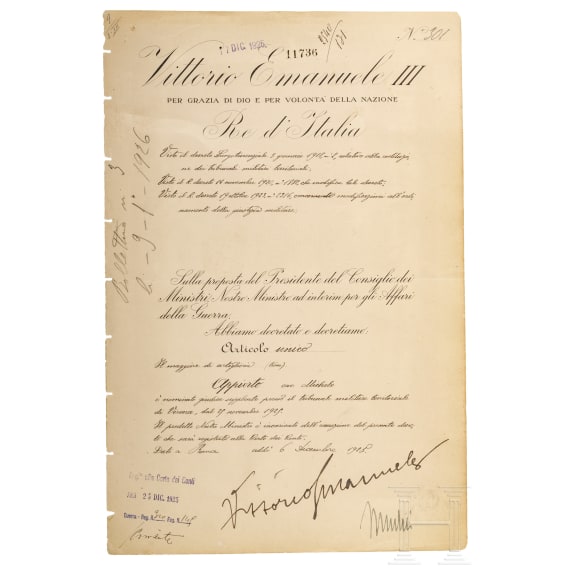 DIC. 1925.
11736
N° 301
Vittorio Emanuele III
PER GRAZIA DI DIO E PER VOLONTÀ DELLA NAZIONE
Re d'Italia
Visto il decreto Luogotenenziale 5 gennaio
dei tribunali militari territoriali;
Visto il R. decreto 14 novembre che modifica tale decreto;
Visto il R. decreto 19 ottobre 1923
militare;
Bollettino n. 3
9-1°-1926
Sulla proposta del Presidente del Consiglio dei
Ministri, Nostro Ministro ad interim per gli Affari
della Guerra;
Abbiamo decretato e decretiamo:
Articolo unico
Il maggiore di artiglieria
Appierto cav. Michele
è nominato giudice supplente presso il tribunale militare territoriale
di Verona, dal 27 novembre 1925.
Il predetto Nostro Ministro è incaricato dell'esecuzione del presente decre-
to che sarà registrato alla Corte dei Conti.
Dato a Roma addì 6 Dicembre 1925.
Vittorio Emanuele
Mussolini
Corte dei Conti
23 DIC. 1925
Guerra - Reg. N. Fog. N.